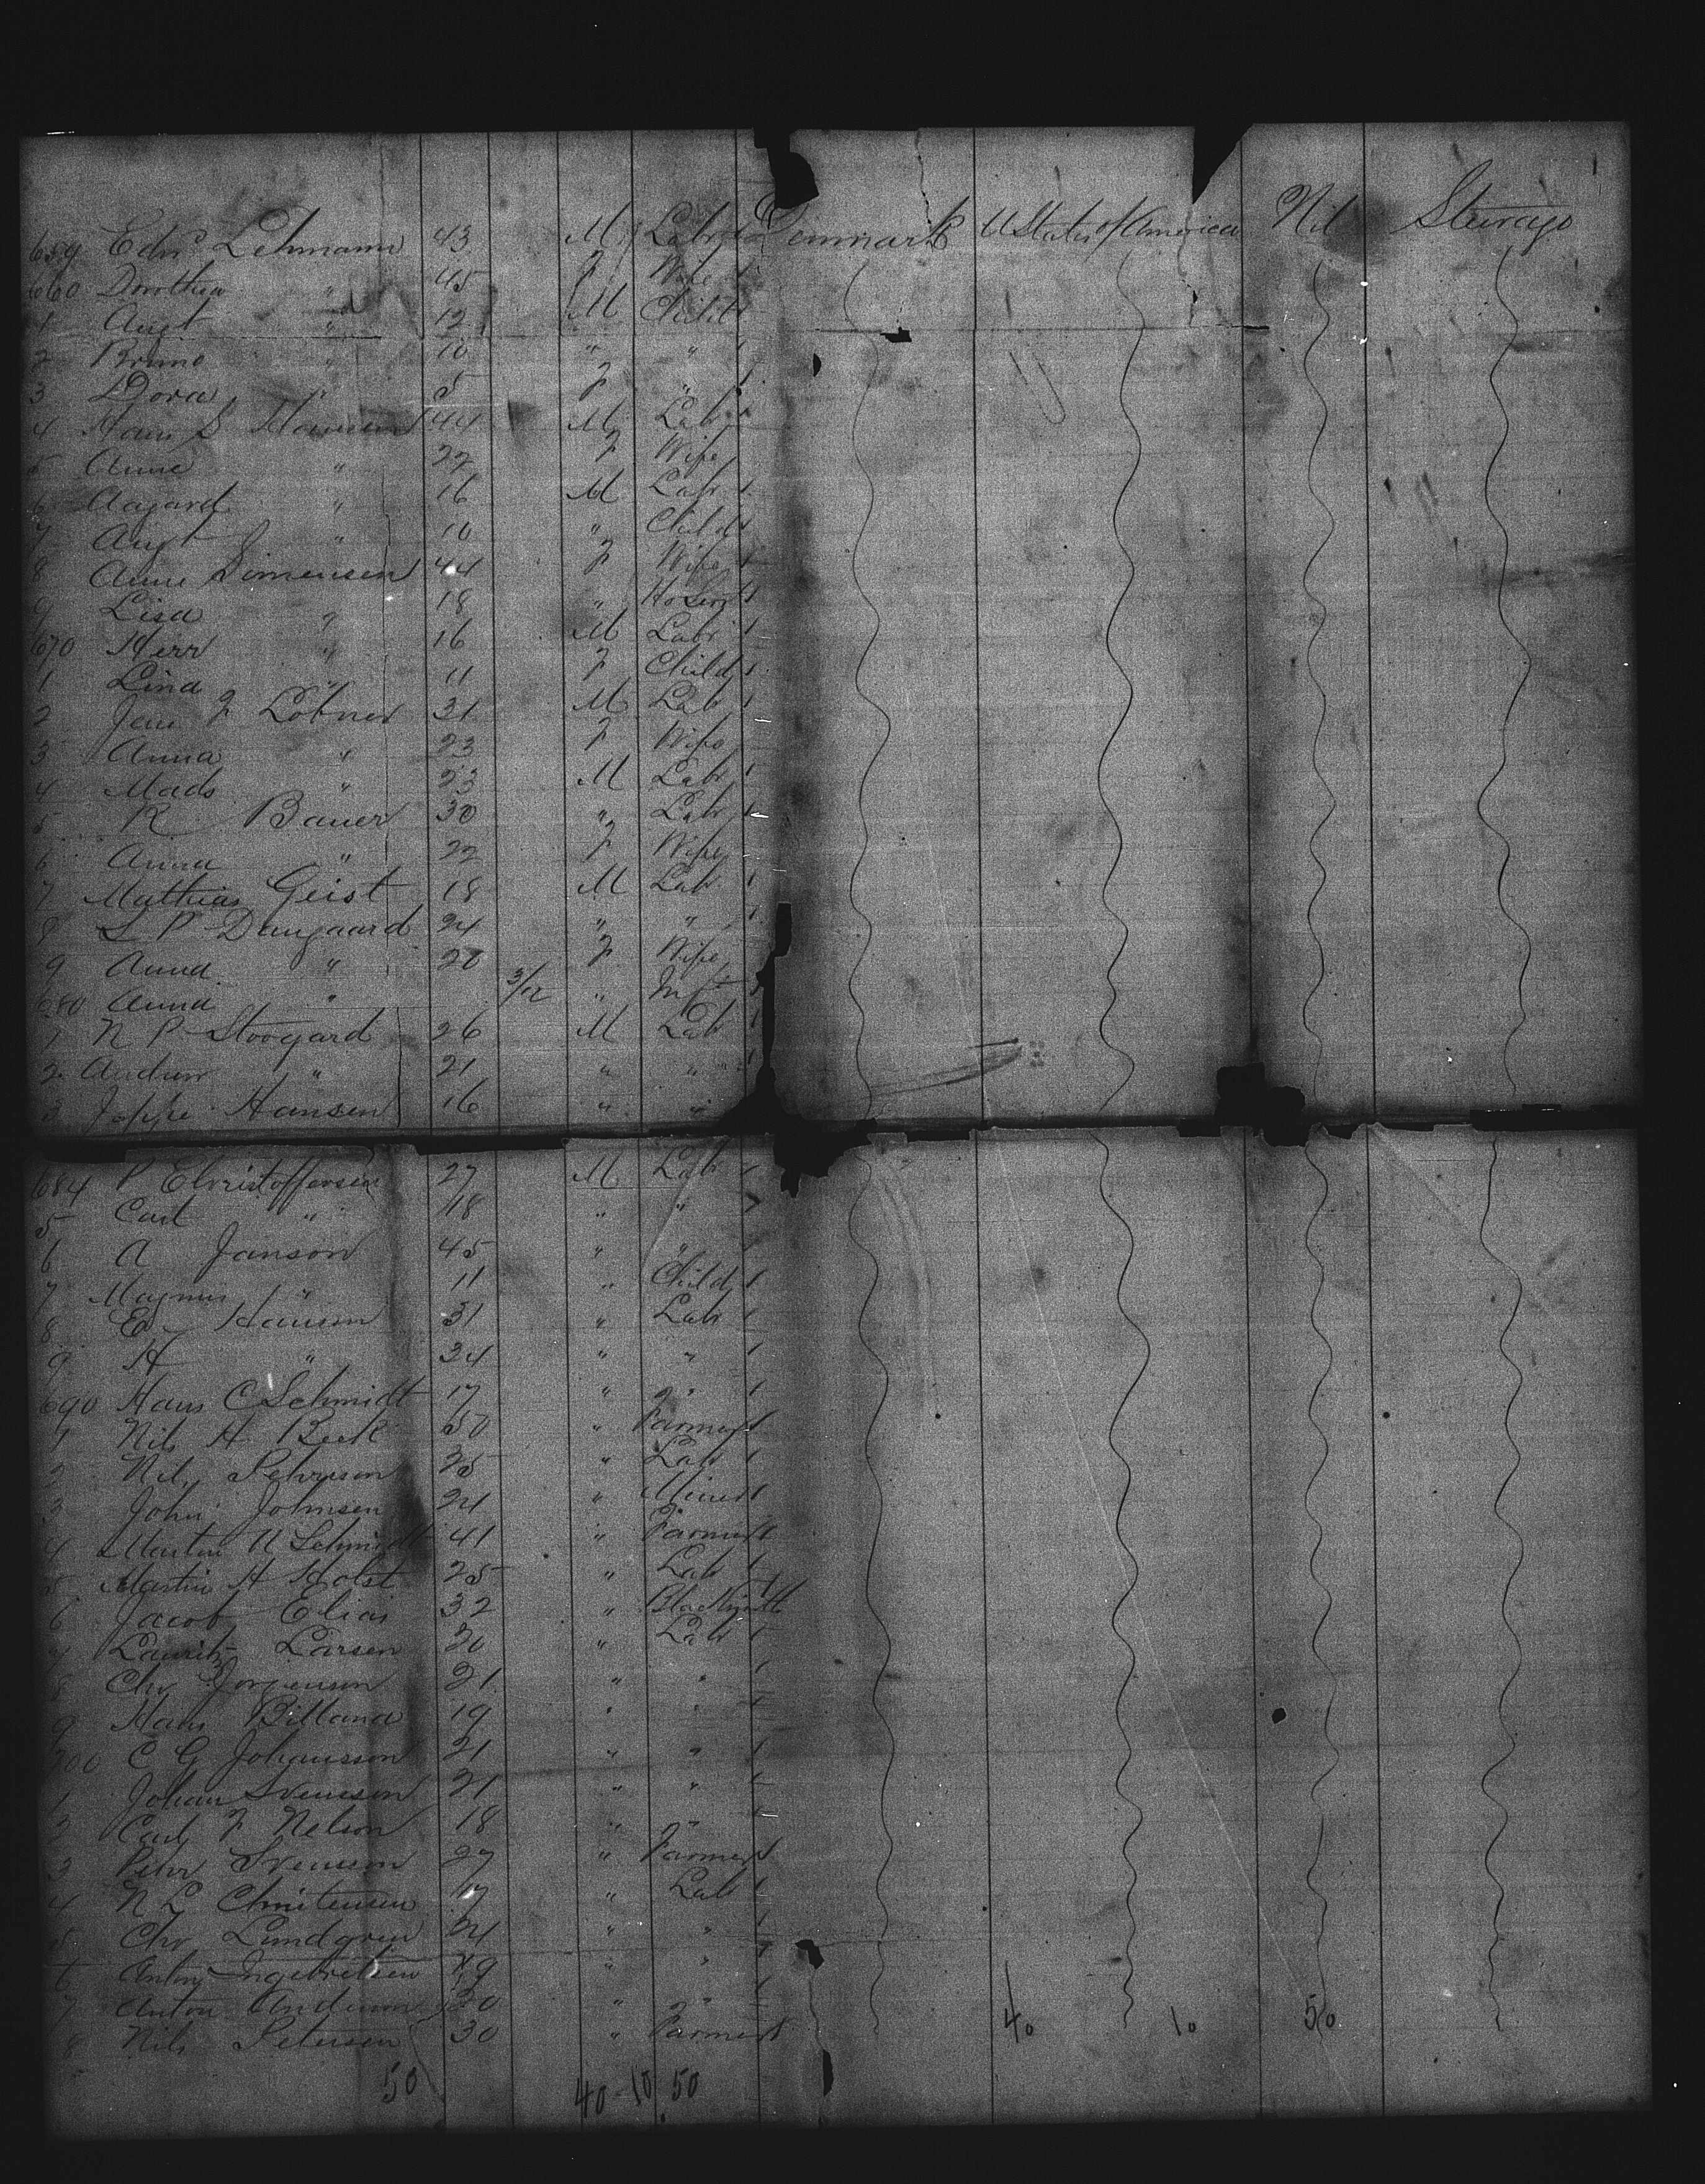 659 Edw Lehmann 43 M Labr Denmark U States of America Nil Steerage
660 Dorothea " 45 F Wife 1
1 Augt " 12 M Child 1
2 Bruno " 10 " " 1
3 Dora " 5 F " 1
4 Hans S Hansen 44 M Labr 1
5 Anne " 22 F Wife
6 Aagard " 16 M Labr 1
7 Augt " 10 " Child 1
8 Anne Simensen 44 F Wife 1
9 Lisa " 18 " Ho Serv 1
670 Herr " 16 M Labr 1
1 Lina " 11 F Child 1
2 Jens F Lobner 31 M Lab 1
3 Anna " 23 F Wife
4 Mads " 23 M Labr 1
5 R Bauer 30 " Labr 1
6 Anna " 22 F Wife
7 Mathias Geist 18 M Lab 1
8 S P Daugaard 24 " " 1
9 Anna " 20 F Wife
680 Anna " 3/12 " Inft
1 N P Stoogard 26 M Lab 1
2 Andrew " 21 " " 1
3 Jeppe Hansen 16 " "
684 P Christoffersen 27 M Lab 1
5 Carl " 18 " "
6 A Janson 45 " " 1
7 Magnus " 11 " Child 1
8 E Hansen 31 " Lab 1
9 H " 34 " " 1
690 Hans C Schmidt 17 " " 1
1 Nils H Beck 50 " Farmer 1
2 Nils Petersen 25 " Lab 1
3 John Johnsen 24 " Miner 1
4 Martin N Schmidt 41 " Farmer 1
5 Martin H Holst 25 " Lab 1
6 Jacob Elias 32 " Blacksmith
7 Lauritz Larsen 30 " Lab 1
8 Chr Jorgensen 21 " " 1
9 Hans Billand 19 " " 1
700 C G Johansson 21 " " 1
1 Johan Svensson 21 " " 1
2 Carl F Nelson 18 " " 1
3 Peter Svensson 27 " Farmer 1
4 N L Christensen 17 " Lab 1
5 Chr Lundgren 24 " " 1
6 Anton Ingebretsen 49 " " 1
7 Anton Andersen 30 " " 1
8 Nils Petersen 30 " Farmer 1 40 10 50
50 40 10 50